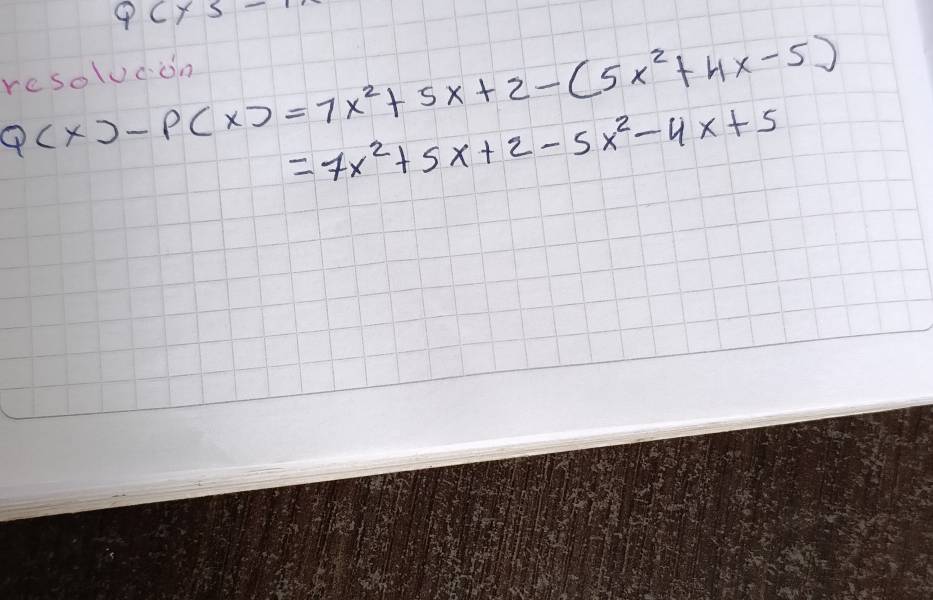 resolución
Q(x)-P(x)=7x²+5x+2-(5x²+4x-5)
=7x²+5x+2-5x²-4x+5